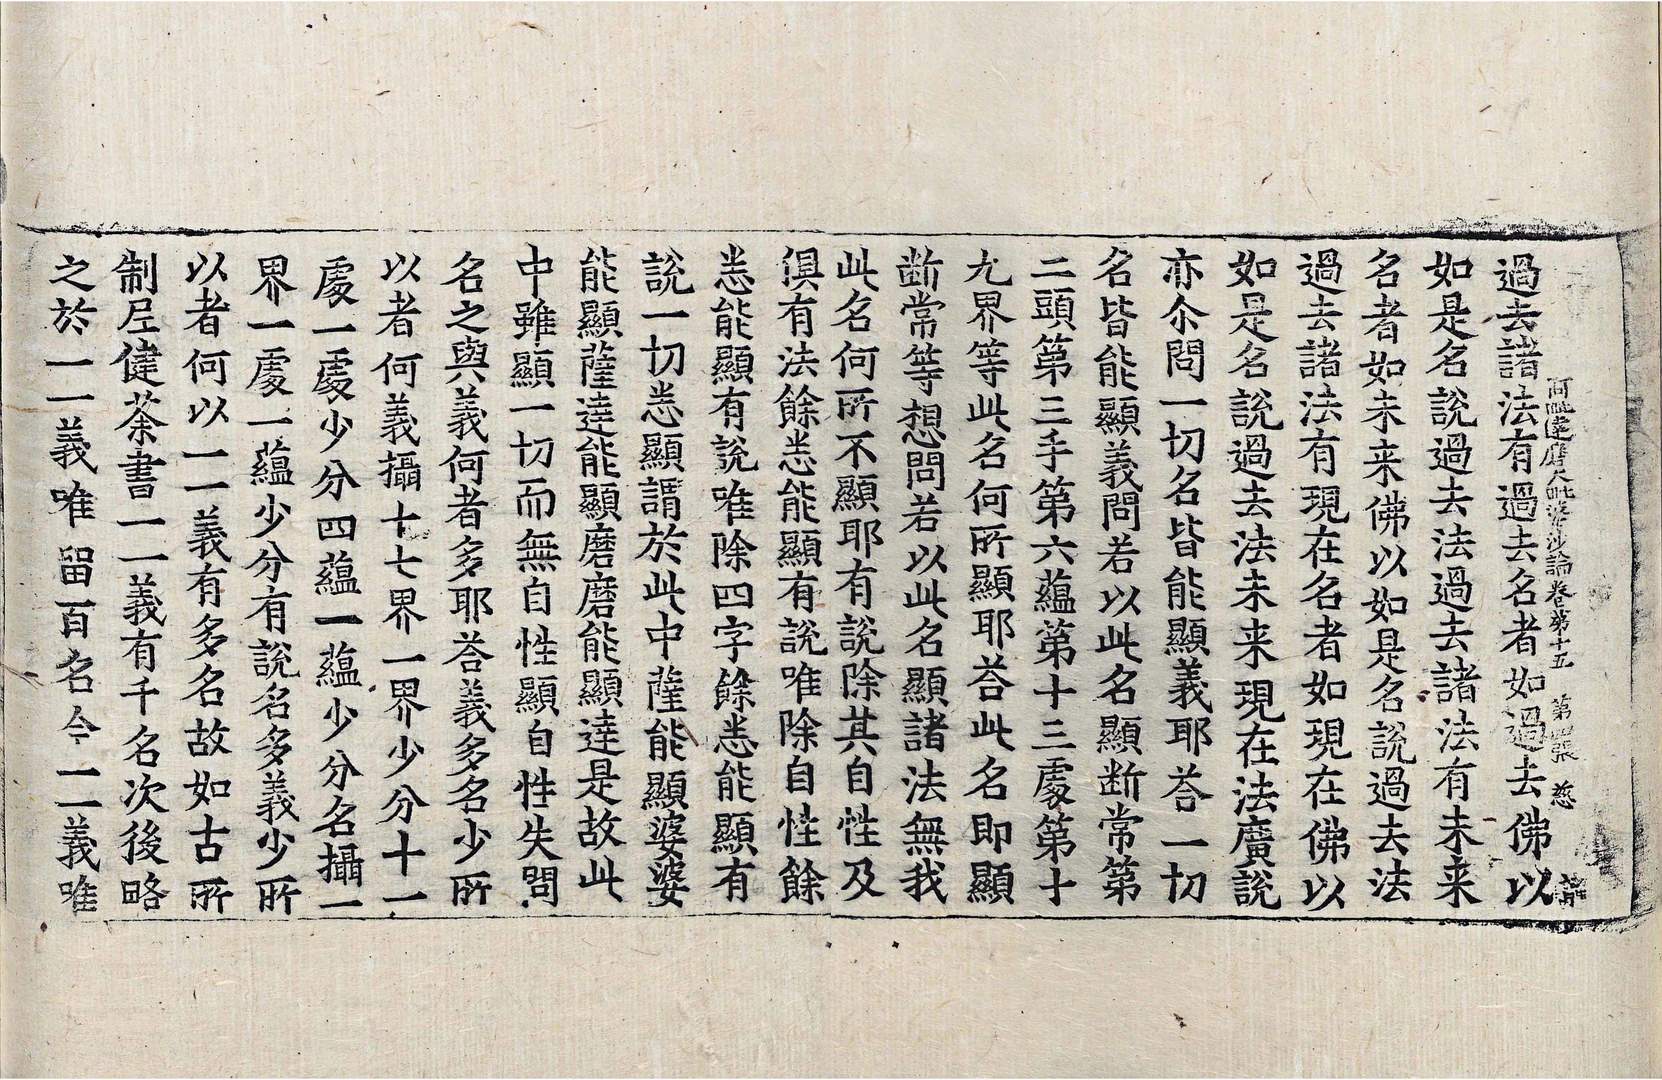 阿毗達磨大毗婆沙論卷第十五 第四張 慈
過去諸法有過去名者如過去佛以
如是名說過去法過去諸法有未来
名者如未来佛以如是名說過去法
過去諸法有現在名者如現在佛以
如是名說過去法未来現在法廣說
亦尒問一切名皆能顯義耶荅一切
名皆能顯義問若以此名顯断常第
二頭第三手第六蘊第十三處第十
九界等此名何所顯耶荅此名即顯
断常等想問若以此名顯諸法無我
此名何所不顯耶有說除其自性及
俱有法餘悉能顯有說唯除自性餘
悉能顯有說唯除四字餘悉能顯有
說一切悉顯謂於此中薩能顯婆婆
能顯薩達能顯磨磨能顯達是故此
中雖顯一切而無自性顯自性失問
名之與義何者多耶荅義多名少所
以者何義攝十七界一界少分十一
處一處少分四蘊一蘊少分名攝一
界一處一蘊少分有說名多義少所
以者何以一一義有多名故如古所
制尼健荼書一一義有千名次後略
之於一一義唯留百名今一一義唯